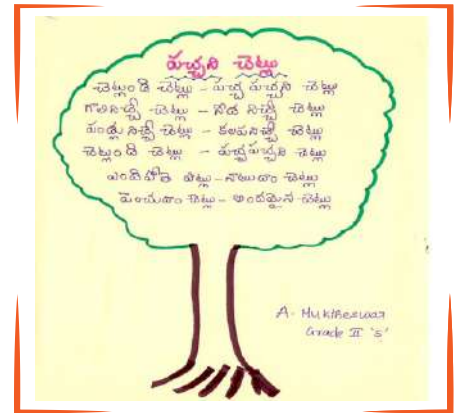 పచ్చని చెట్లు
చెట్లండి చెట్లు - పచ్చ పచ్చని చెట్లు
గాలినిచ్చే చెట్లు - నీడ నిచ్చే చెట్లు
పండ్లు నిచ్చే చెట్లు - కలపనిచ్చే చెట్లు
చెట్లండి చెట్లు - పచ్చపచ్చని చెట్లు
చెట్లు - నాటుదాం చెట్లు
పెంచుదాం చెట్లు - అందమైన చెట్లు
A. Muktheswar
Grade II 'S'